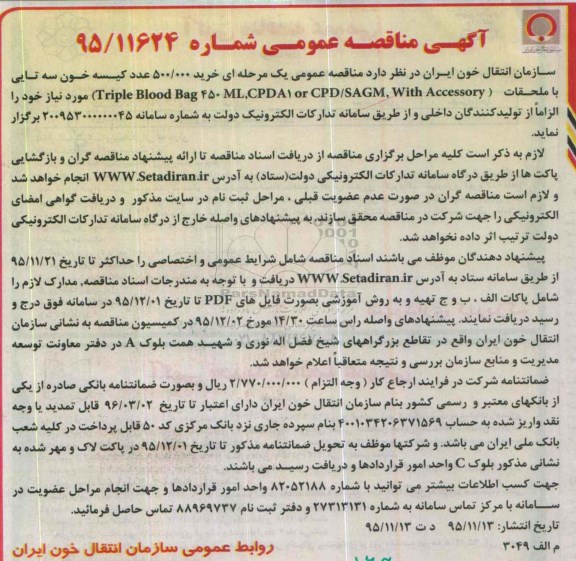 آگهی مناقصه عمومی شماره ۹۵/۱۱۶۲۴
سازمان انتقال خون ایران در نظر دارد مناقصه عمومی یک مرحله ای خرید ۵۰۰/۰۰۰ عدد کیسه خون سه تایی
با ملحقات ( Triple Blood Bag ۴۵۰ ML,CPDA۱ or CPD/SAGM, With Accessory) مورد نیاز خود را
الزاماً از تولیدکنندگان داخلی و از طریق سامانه تدارکات الکترونیک دولت به شماره سامانه ۲۰۰۹۵۳۰۰۰۰۰۰۴۵ برگزار
نماید.
لازم به ذکر است کلیه مراحل برگزاری مناقصه از دریافت اسناد مناقصه تا ارائه پیشنهاد مناقصه گران و بازگشایی
پاکت ها از طریق درگاه سامانه تدارکات الکترونیکی دولت(ستاد) به آدرس WWW.Setadiran.ir انجام خواهد شد
و لازم است مناقصه گران در صورت عدم عضویت قبلی ، مراحل ثبت نام در سایت مذکور و دریافت گواهی امضای
الکترونیکی را جهت شرکت در مناقصه محقق سازند. به پیشنهادهای واصله خارج از درگاه سامانه تدارکات الکترونیکی
دولت ترتیب اثر داده نخواهد شد.
پیشنهاد دهندگان موظف می باشند اسناد مناقصه شامل شرایط عمومی و اختصاصی را حداکثر تا تاریخ ۹۵/۱۱/۲۱
از طریق سامانه ستاد به آدرس WWW.Setadiran.ir دریافت و با توجه به مندرجات اسناد مناقصه, مدارک لازم را
شامل پاکات الف ، ب و ج تهیه و به روش آموزشی بصورت فایل های PDF تا تاریخ ۹۵/۱۲/۰۱ در سامانه فوق درج و
رسید دریافت نمایند. پیشنهادهای واصله راس ساعت ۱۴/۳۰ مورخ ۹۵/۱۲/۰۲ در کمیسیون مناقصه به نشانی سازمان
انتقال خون ایران واقع در تقاطع بزرگراههای شیخ فضل اله نوری و شهید همت بلوک A در دفتر معاونت توسعه
مدیریت و منابع سازمان بررسی و نتیجه متعاقباً اعلام خواهد شد.
ضمانتنامه شرکت در فرایند ارجاع کار ( وجه التزام ) ۲/۷۷۰/۰۰۰/۰۰۰ ریال و بصورت ضمانتنامه بانکی صادره از یکی
از بانکهای معتبر و رسمی کشور بنام سازمان انتقال خون ایران دارای اعتبار تا تاریخ ۹۶/۰۳/۰۲ قابل تمدید یا وجه
نقد واریز شده به حساب ۴۰۰۱۰۳۴۲۰۶۳۷۱۵۶۹ بنام سپرده جاری نزد بانک مرکزی کد ۵۰ قابل پرداخت در کلیه شعب
بانک ملی ایران می باشد. و شرکتها موظف به تحویل ضمانتنامه مذکور تا تاریخ ۹۵/۱۲/۰۱ در پاکت لاک و مهر شده به
نشانی مذکور بلوک C واحد امور قراردادها و دریافت رسید می باشند.
جهت کسب اطلاعات بیشتر می توانید با شماره ۸۲۰۵۲۱۸۸ واحد امور قراردادها و جهت انجام مراحل عضویت در
سامانه با مرکز تماس سامانه به شماره ۲۷۳۱۳۱۳۱ و دفتر ثبت نام ۸۸۹۶۹۷۳۷ تماس حاصل فرمائید.
تاریخ انتشار: ۹۵/۱۱/۱۳ د ت ۹۵/۱۱/۱۳
م الف ۳۰۴۹
روابط عمومی سازمان انتقال خون ایران